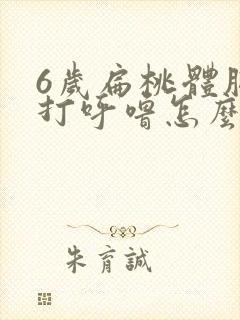 6歲扁桃體肥
打呼嚕怎麼
朱育誠